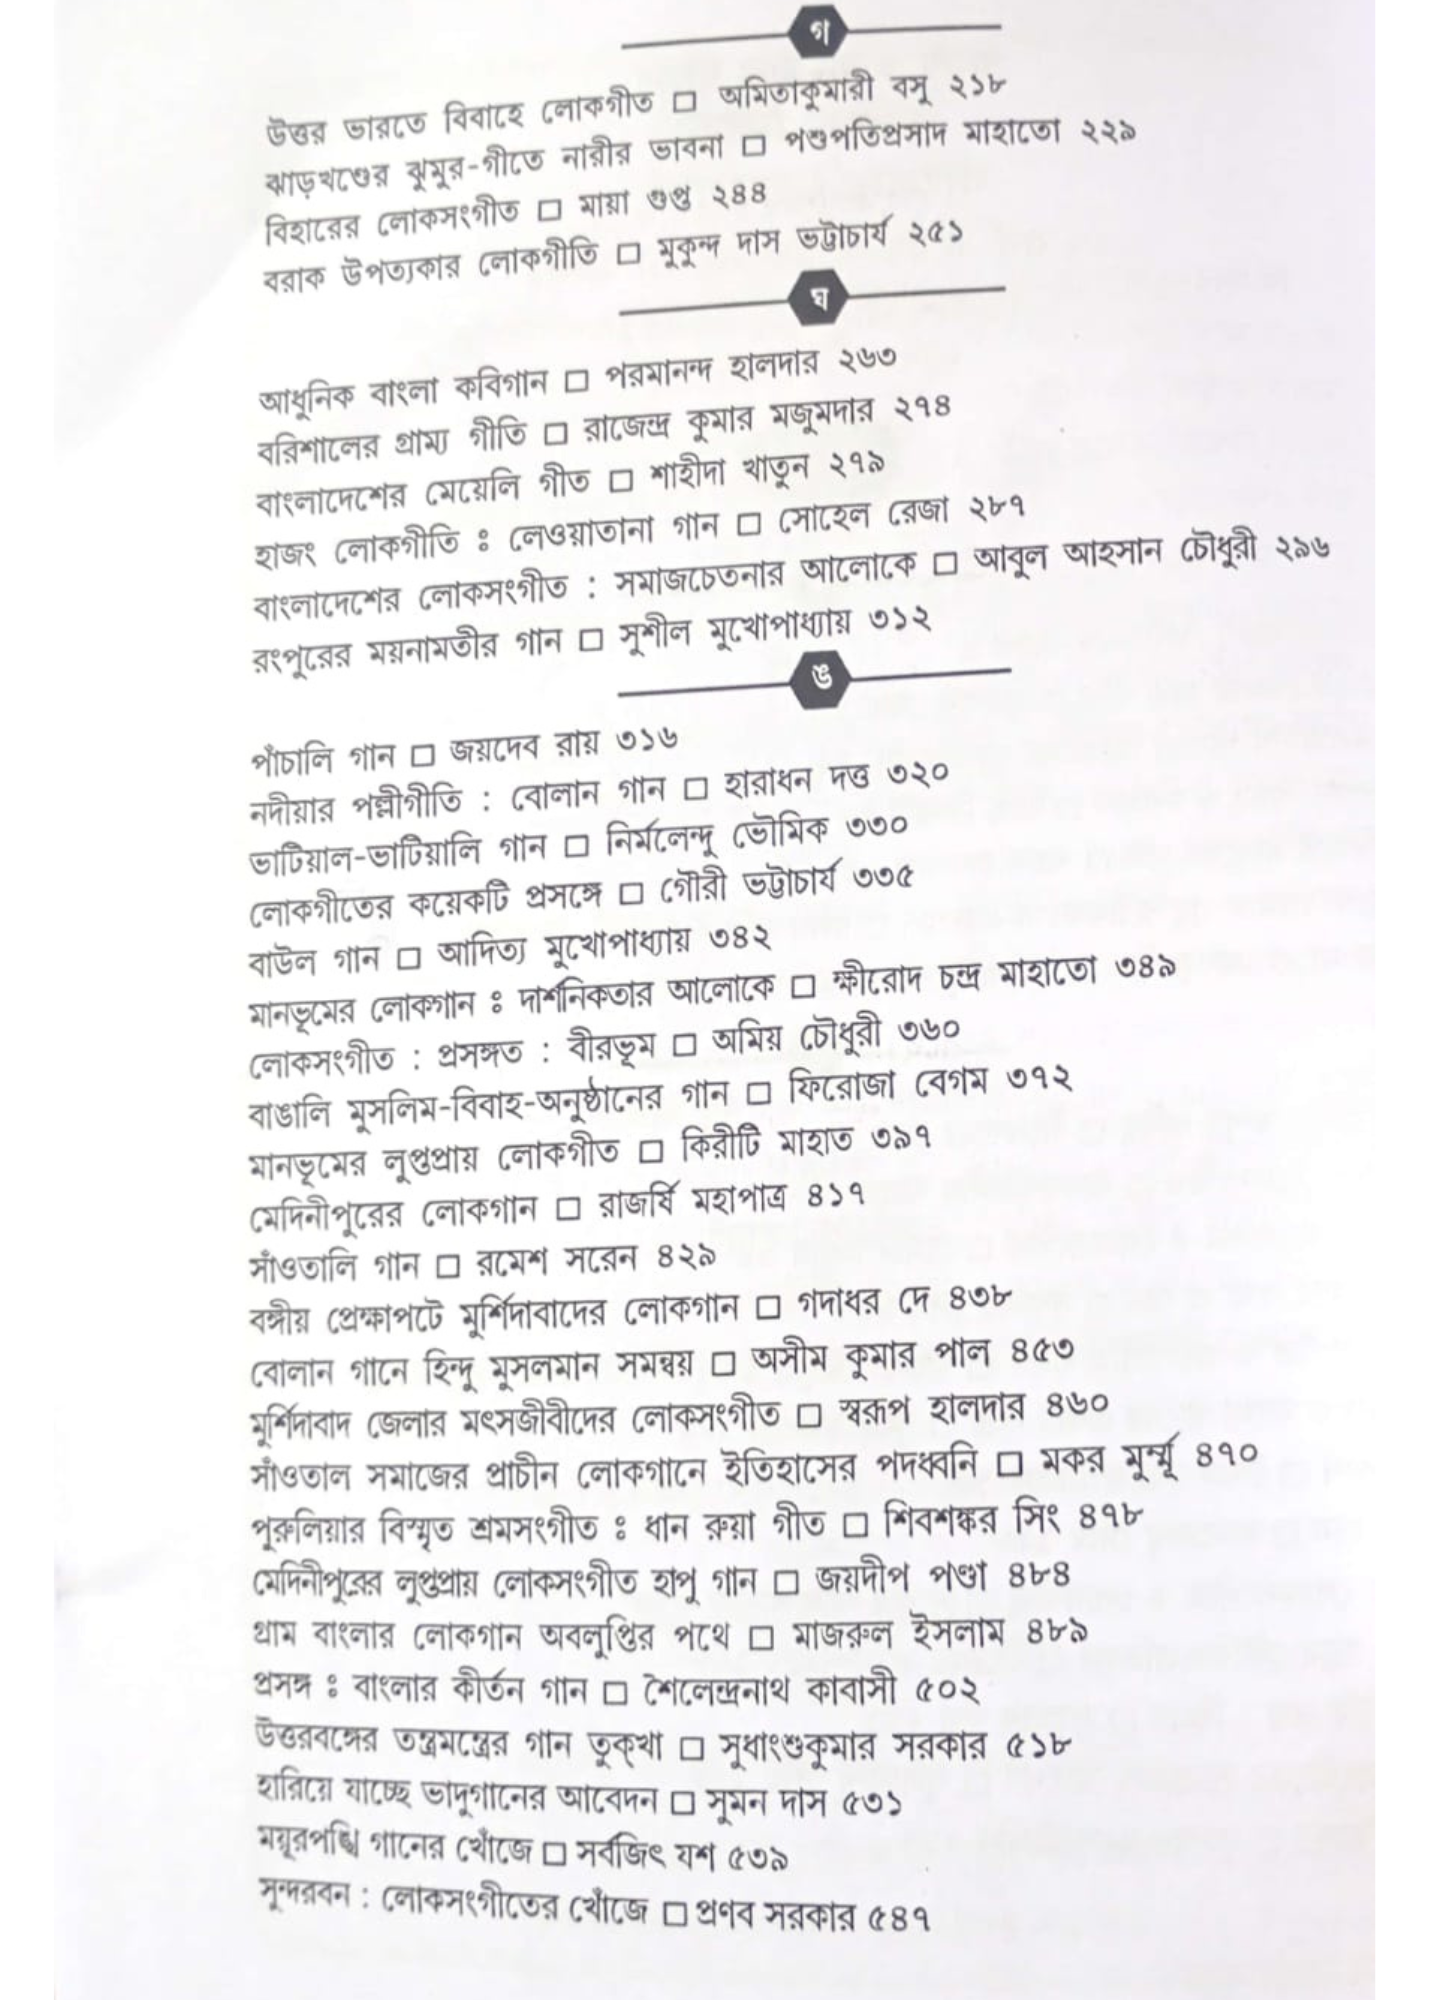 গ
উত্তর ভারতে বিবাহে লোকগীত □ অমিতাকুমারী বসু ২১৮
ঝাড়খণ্ডের ঝুমুর-গীতে নারীর ভাবনা □ পশুপতিপ্রসাদ মাহাতো ২২৯
বিহারের লোকসংগীত □ মায়া গুপ্ত ২৪৪
বরাক উপত্যকার লোকগীতি □ মুকুন্দ দাস ভট্টাচার্য ২৫১
ঘ
আধুনিক বাংলা কবিগান □ পরমানন্দ হালদার ২৬৩
বরিশালের গ্রাম্য গীতি □ রাজেন্দ্র কুমার মজুমদার ২৭৪
বাংলাদেশের মেয়েলি গীত □ শাহীদা খাতুন ২৭৯
হাজং লোকগীতি ঃ লেওয়াতানা গান □ সোহেল রেজা ২৮৭
বাংলাদেশের লোকসংগীত : সমাজচেতনার আলোকে □ আবুল আহসান চৌধুরী ২৯৬
রংপুরের ময়নামতীর গান □ সুশীল মুখোপাধ্যায় ৩১২
ঙ
পাঁচালি গান □ জয়দেব রায় ৩১৬
নদীয়ার পল্লীগীতি : বোলান গান □ হারাধন দত্ত ৩২০
ভাটিয়াল-ভাটিয়ালি গান □ নির্মলেন্দু ভৌমিক ৩৩০
লোকগীতের কয়েকটি প্রসঙ্গে □ গৌরী ভট্টাচার্য ৩৩৫
বাউল গান □ আদিত্য মুখোপাধ্যায় ৩৪২
মানভূমের লোকগান ঃ দার্শনিকতার আলোকে □ ক্ষীরোদ চন্দ্র মাহাতো ৩৪৯
লোকসংগীত : প্রসঙ্গত : বীরভূম □ অমিয় চৌধুরী ৩৬০
বাঙালি মুসলিম-বিবাহ-অনুষ্ঠানের গান □ ফিরোজা বেগম ৩৭২
মানভূমের লুপ্তপ্রায় লোকগীত □ কিরীটি মাহাত ৩৯৭
মেদিনীপুরের লোকগান □ রাজর্ষি মহাপাত্র ৪১৭
সাঁওতালি গান □ রমেশ সরেন ৪২৯
বঙ্গীয় প্রেক্ষাপটে মুর্শিদাবাদের লোকগান □ গদাধর দে ৪৩৮
বোলান গানে হিন্দু মুসলমান সমন্বয় □ অসীম কুমার পাল ৪৫৩
মুর্শিদাবাদ জেলার মৎসজীবীদের লোকসংগীত □ স্বরূপ হালদার ৪৬০
সাঁওতাল সমাজের প্রাচীন লোকগানে ইতিহাসের পদধ্বনি □ মকর মুর্ম্মূ ৪৭০
পুরুলিয়ার বিস্মৃত শ্রমসংগীত ঃ ধান রুয়া গীত □ শিবশঙ্কর সিং ৪৭৮
মেদিনীপুরের লুপ্তপ্রায় লোকসংগীত হাপু গান □ জয়দীপ পণ্ডা ৪৮৪
গ্রাম বাংলার লোকগান অবলুপ্তির পথে □ মাজরুল ইসলাম ৪৮৯
প্রসঙ্গ ঃ বাংলার কীর্তন গান □ শৈলেন্দ্রনাথ কাবাসী ৫০২
উত্তরবঙ্গের তন্ত্রমন্ত্রের গান তুক্‌খা □ সুধাংশুকুমার সরকার ৫১৮
হারিয়ে যাচ্ছে ভাদুগানের আবেদন □ সুমন দাস ৫৩১
ময়ূরপঙ্খি গানের খোঁজে □ সর্বজিৎ যশ ৫৩৯
সুন্দরবন : লোকসংগীতের খোঁজে □ প্রণব সরকার ৫৪৭